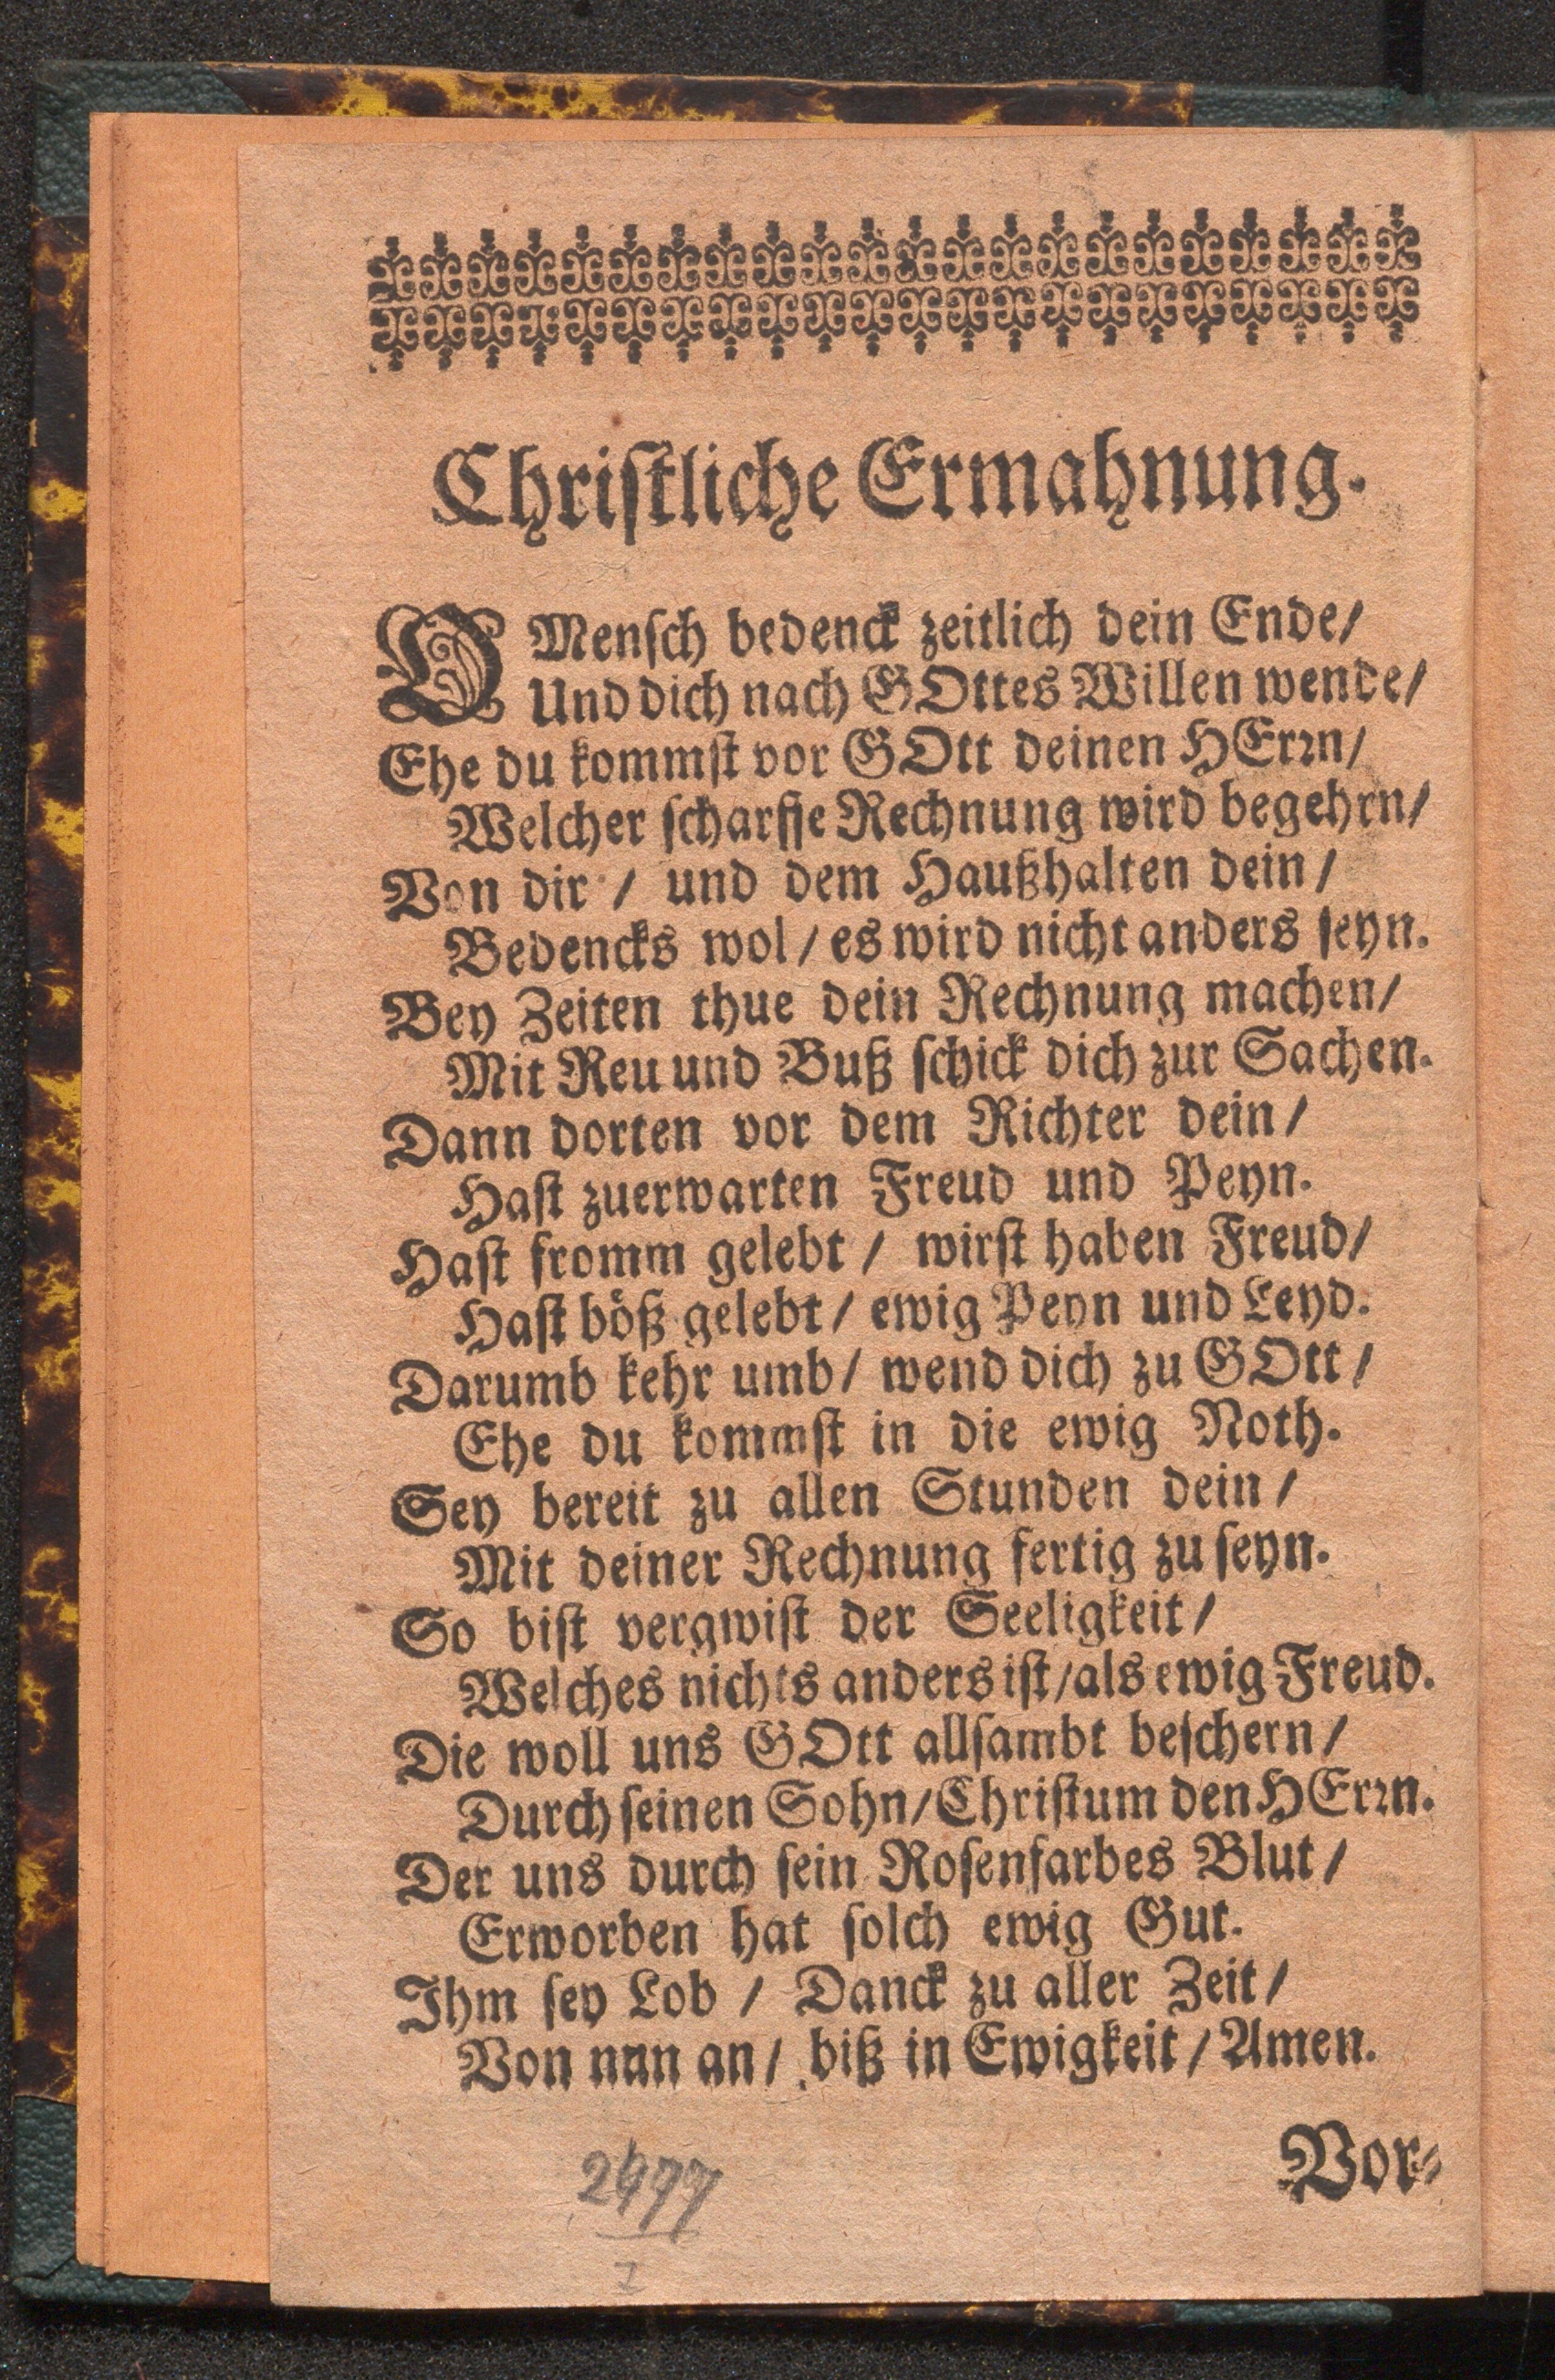 Christliche Ermahnung.
O Mensch bedenck zeitlich dein Ende/
Und dich nach GOttes Willen wende/
Ehe du kommst vor GOtt deinen HErrn/
Welcher scharffe Rechnung wird begehrn/
Von dir / und dem Haußhalten dein/
Bedencks wol / es wird nicht anders seyn.
Bey Zeiten thue dein Rechnung machen/
Mit Reu und Buß schick dich zur Sachen.
Dann dorten vor dem Richter dein/
Hast zuerwarten Freud und Peyn.
Hast fromm gelebt / wirst haben Freud/
Hast böß gelebt / ewig Peyn und Leyd.
Darumb kehr umb / wend dich zu GOtt/
Ehe du kommst in die ewig Noth.
Sey bereit zu allen Stunden dein/
Mit deiner Rechnung fertig zu seyn.
So bist vergwist der Seeligkeit/
Welches nichts anders ist / als ewig Freud.
Die woll uns GOtt allsambt beschern/
Durch seinen Sohn / Christum den HErrn.
Der uns durch sein Rosenfarbes Blut/
Erworben hat solch ewig Gut.
Ihm sey Lob / Danck zu aller Zeit/
Von nun an / biß in Ewigkeit / Amen.
Vor-
2477
I